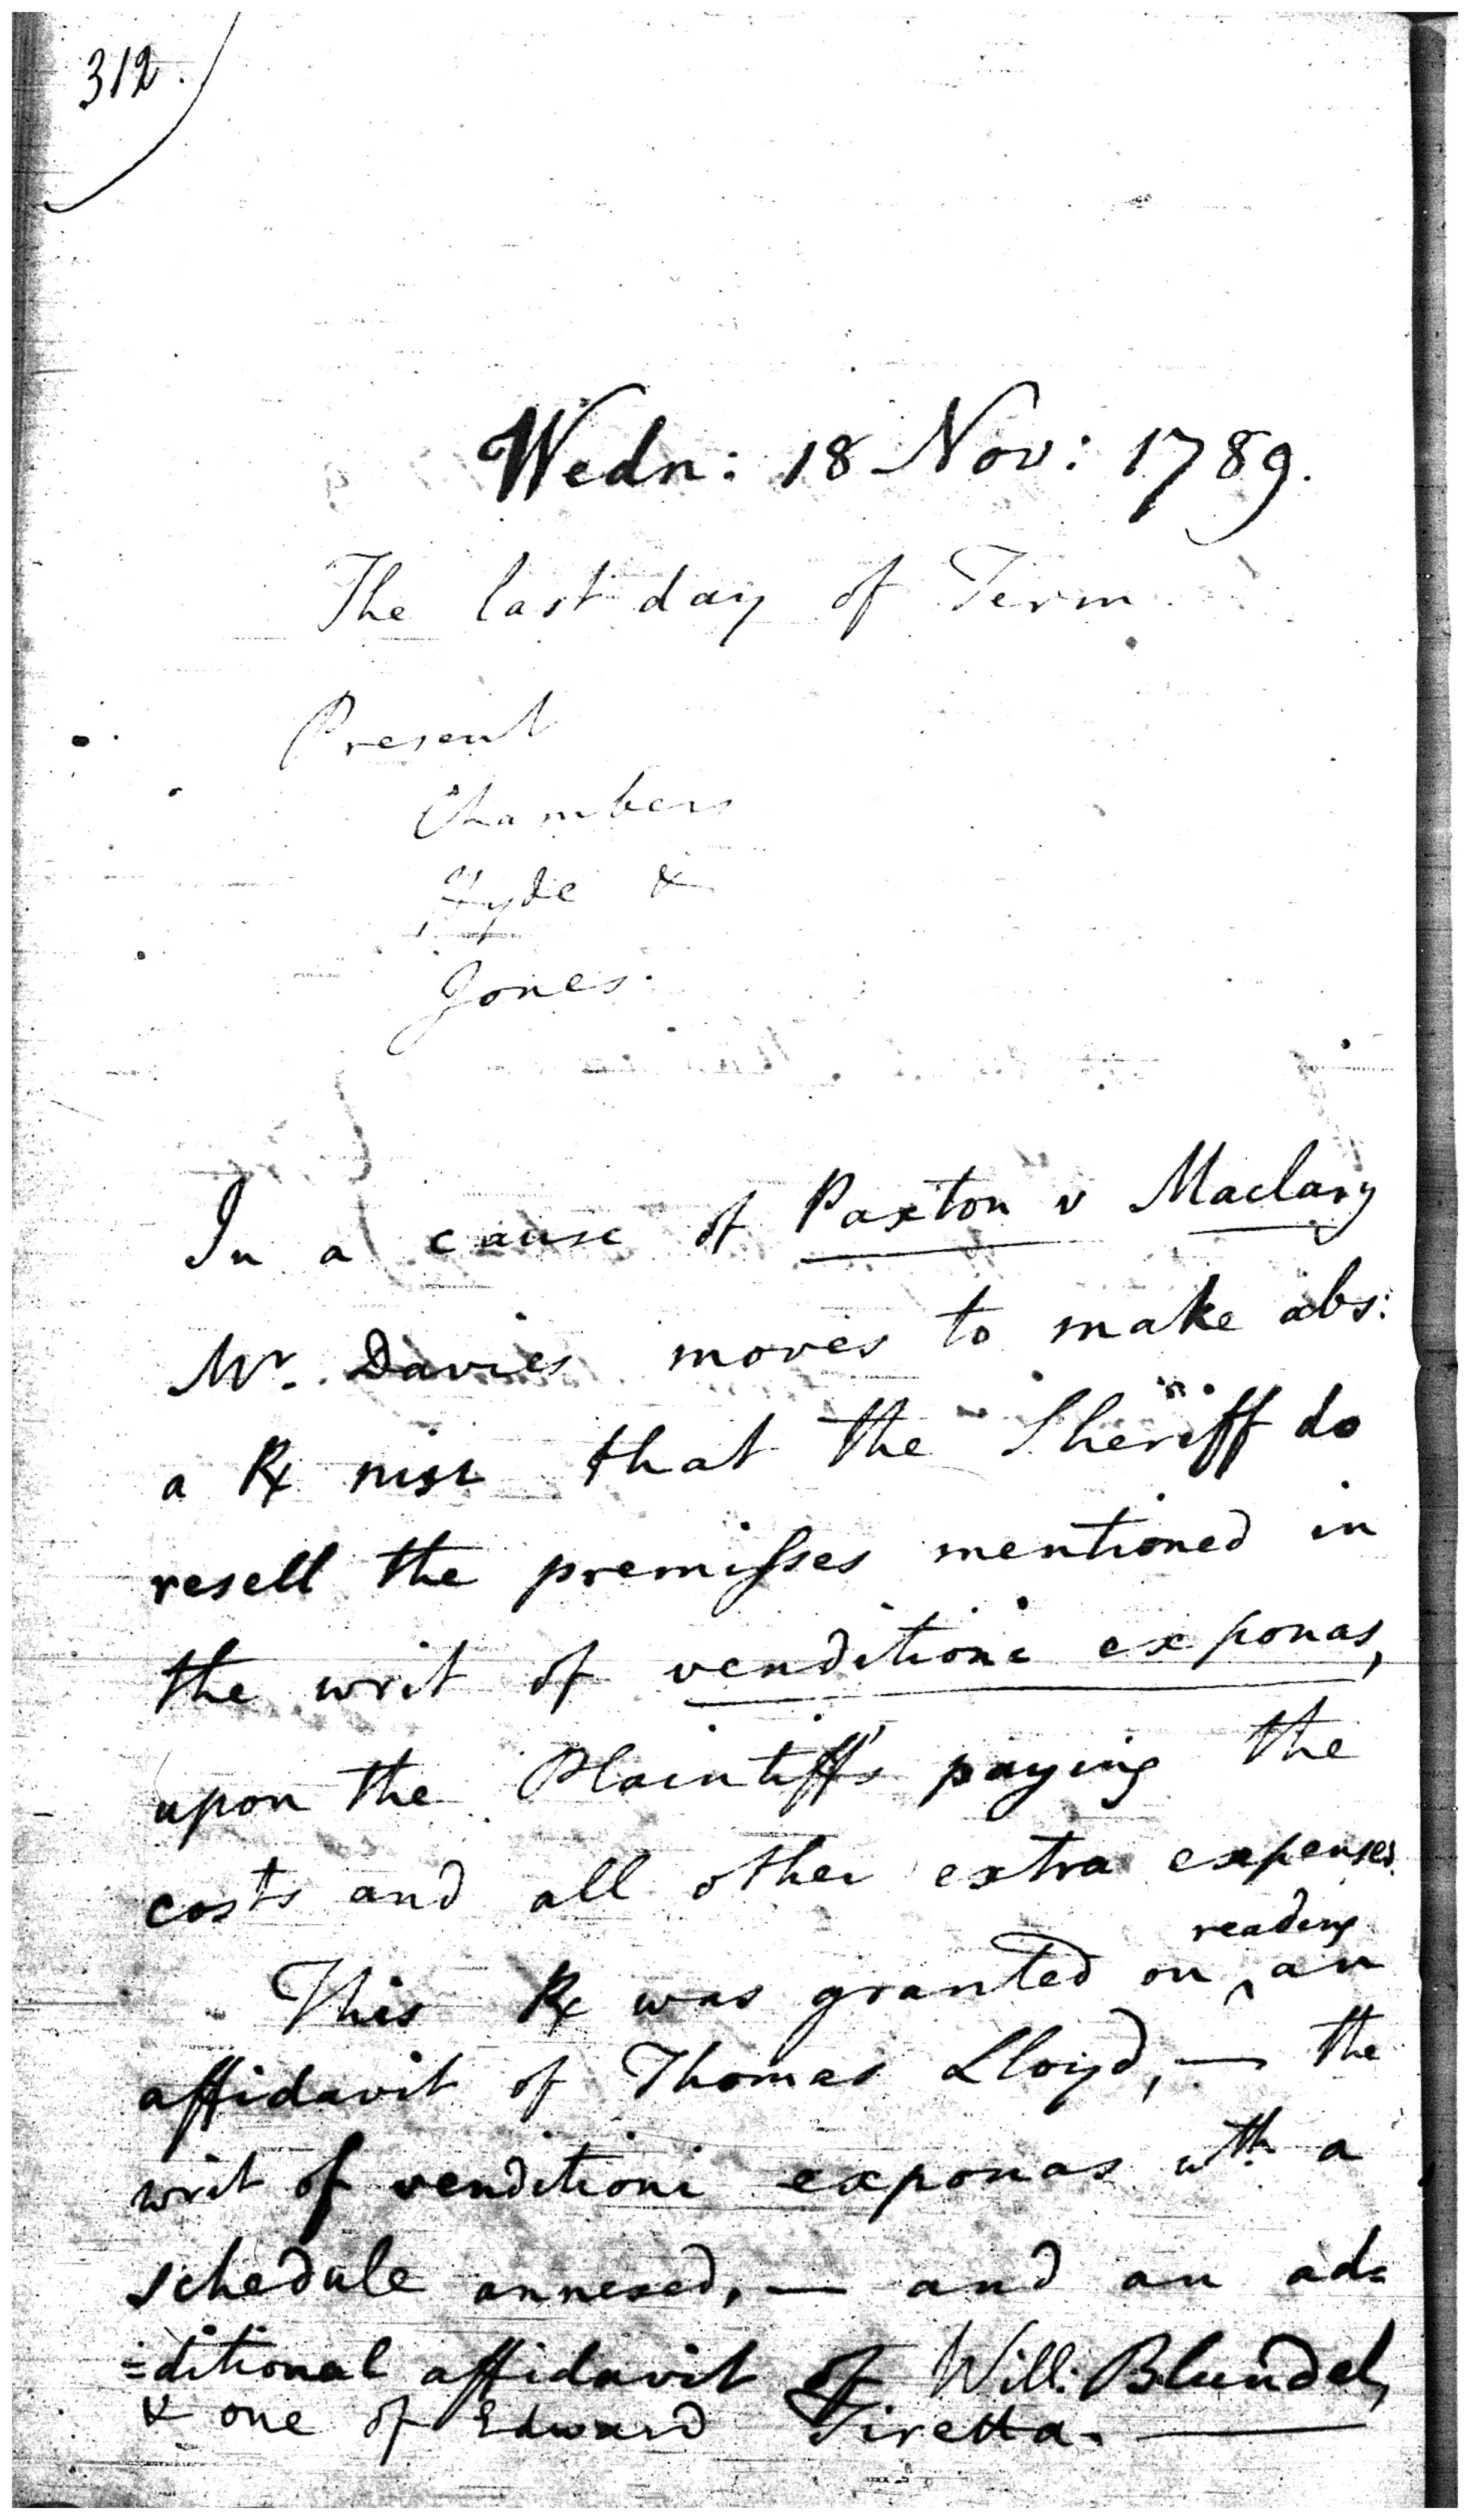 312.
Wedn: 18 Nov: 1789.
The last day of Term.
Present
Chambers
Hyde &
Jones.
In a cause of Paxton v Maclary
Mr. Davies moves to make abs:
a Rx nisi that the Sheriff do
resell the premisses mentioned in
the writ of venditioni exponas,
upon the Plaintiff's paying the
costs and all other extra expenses.
reading
This Rx was granted on ^ an
affidavit of Thomas Lloyd, — the
writ of venditioni exponas wth a
schedule annexed, — and an ad=
=ditional affidavit of Will: Blundel,
& one of Edward Tiretta. —